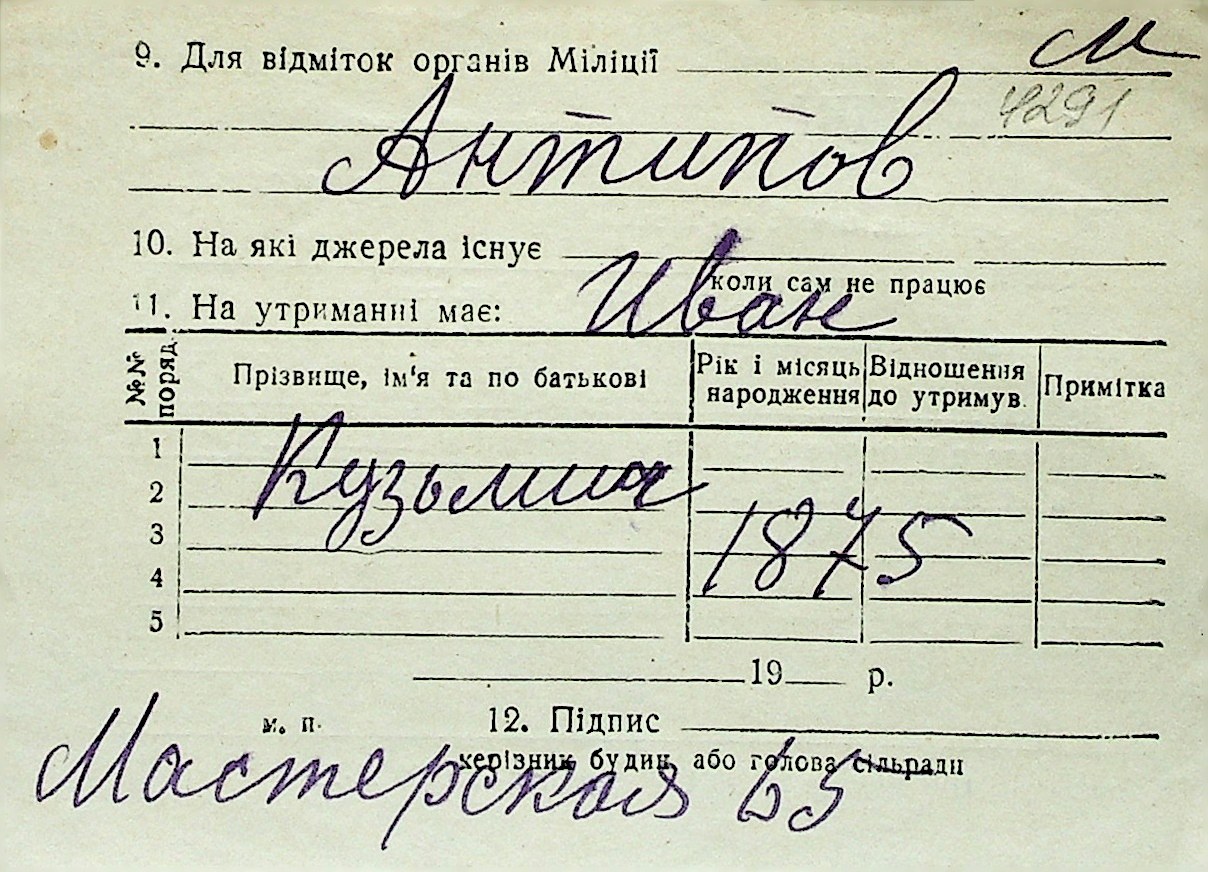 9. Для відміток органів Міліції м
4291
Антипов
10. На які джерела існує
коли сам не працює
11. На утриманні має: Иван
№№ поряд. Прізвище, ім'я та по батькові Рік і місяць народження Відношення до утримув. Примітка
1
Кузьмич
2
3
1875
4
5
19 р.
м. п. 12. Підпис
керізник будин. або голова сільради
Мастерская 65